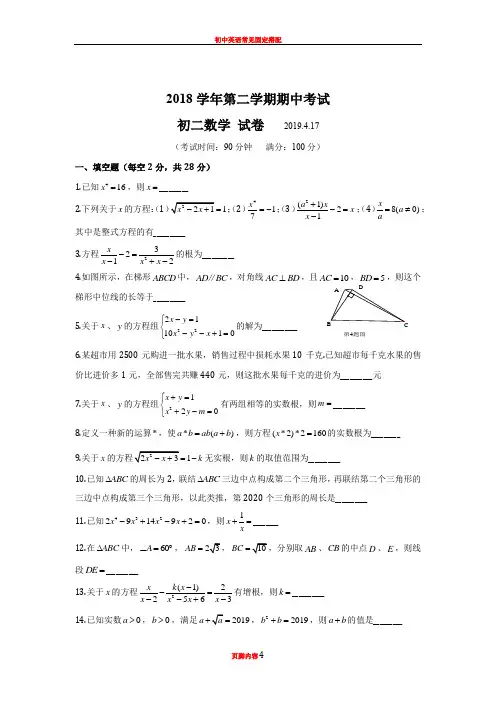 初中英语常见固定搭配
2018 学年第二学期期中考试
初二数学 试卷 2019.4.17
（考试时间：90 分钟 满分：100 分）
一、填空题（每空 2 分，共 28 分）
1.已知 x⁴=16，则 x=______
2.下列关于 x 的方程：（1）√(x²-2x+1)=1；（2）x⁴/7=-1；（3）(a²+1)x/(x-1)-2=x；（4）x/a=8(a≠0)；
其中是整式方程的有______
3.方程 x/(x-1)-2=3/(x²+x-2) 的根为______
4.如图所示，在梯形 ABCD 中，AD∥BC，对角线 AC⊥BD，且 AC=10，BD=5，则这个
梯形中位线的长等于______
A D
B C
第4题图
5.关于 x 、 y 的方程组 {2x-y=1 10x²-y²-x+1=0 的解为______
6.某超市用 2500 元购进一批水果，销售过程中损耗水果 10 千克.已知超市每千克水果的售
价比进价多 1 元，全部售完共赚 440 元，则这批水果每千克的进价为______元
7.关于 x 、 y 的方程组 {x+y=1 x²+2y-m=0 有两组相等的实数根，则 m=______
8.定义一种新的运算*，使 a*b=ab(a+b)，则方程(x*2)*2=160 的实数根为______
9.关于 x 的方程√(2x²-x+3)=1-k 无实根，则 k 的取值范围为______
10.已知 ΔABC 的周长为 2，联结 ΔABC 三边中点构成第二个三角形，再联结第二个三角形的
三边中点构成第三个三角形，以此类推，第 2020 个三角形的周长是______
11.已知 2x⁴-9x³+14x²-9x+2=0，则 x+1/x=______
12.在 ΔABC 中，∠A=60°，AB=2√3，BC=√10，分别取 AB 、CB 的中点 D 、 E ，则线
段 DE=______
13.关于 x 的方程 x/(x-2)-k(x-1)/(x²-5x+6)=2/(x-3) 有增根，则 k=______
14.已知实数 a>0，b>0，满足 a+√a=2019，b²+b=2019，则 a+b 的值是______
页脚内容4